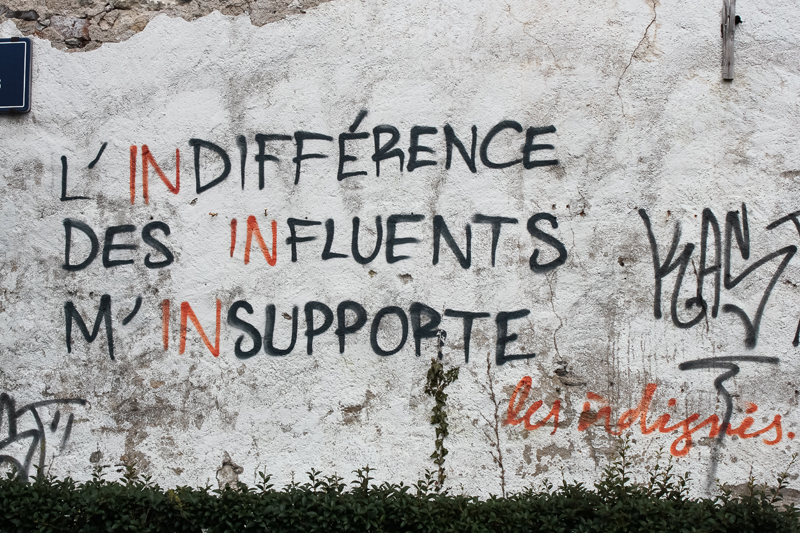 L'INDIFFÉRENCE
DES INFLUENTS
M'INSUPPORTE
les indignés.